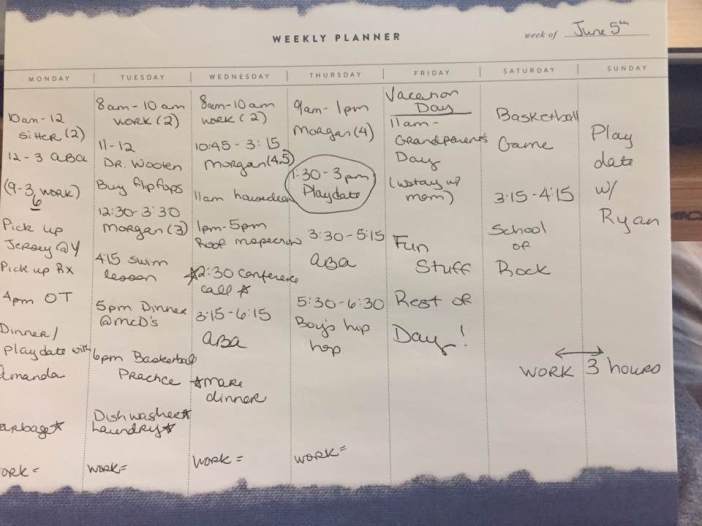 WEEKLY PLANNER
week of June 5th
MONDAY
10am-12
Sitter (2)
12-3 ABA
(9-3, work)
6
Pick up
Jersey @ Y
Pick up Rx
4pm OT
Dinner/
playdate with
Amanda
arbage*
ork =
TUESDAY
8am-10am
work (2)
11-12
Dr. Woolen
Buy flipflops
12:30-3:30
Morgan (3)
4:15 swim
lesson
5pm Dinner
@McD's
6pm Basketball
Practice
Dishwasher*
Laundry*
work=
WEDNESDAY
8am-10am
work (2)
10:45-3:15
Morgan (4.5)
11am
1pm-5pm
Roof inspection
*2:30 conference
call *
3:15-6:15
ABA
*make
dinner
work =
THURSDAY
9am-1pm
Morgan (4)
1:30-3pm
Playdate
3:30-5:15
ABA
5:30-6:30
Boy's hip
hop
work=
FRIDAY
Vacation
Day
11am-
Grandparents
Day
mom)
Fun
Stuff
Rest of
Day!
SATURDAY
Basketball
Game
3:15-4:15
School
of
Rock
SUNDAY
Play
date
w/
Ryan
work 3 hours